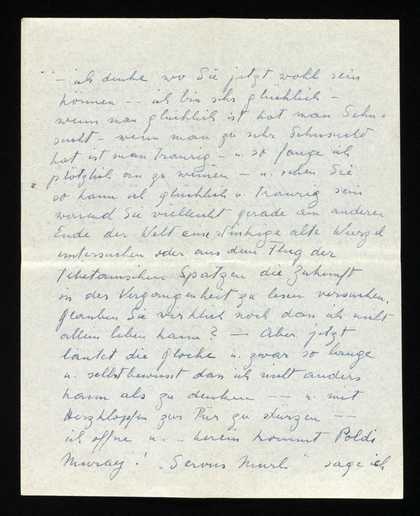 – ich denke wo Sie jetzt wohl sein
können –– ich bin sehr glücklich –
wenn man glücklich ist hat man Sehn-
sucht – wenn man zu sehr Sehnsucht
hat ist man traurig – u. so fange ich
plötzlich an zu weinen – u. sehen Sie
so kann ich glücklich u. traurig sein
während Sie vielleicht gerade am anderen
Ende der Welt eine alte Wurzel
untersuchen oder aus dem Flug der
tibetanischen Spatzen die Zukunft
in der Vergangenheit zu lesen versuchen.
glauben Sie wirklich noch dass ich nicht
allein leben kann? –– Aber jetzt
läutet die Glocke u. zwar so lange
u. selbstbewusst dass ich nicht anders
kann als zu denken –– u. mit
Herzklopfen zur Tür zu stürzen ––
ich öffne u. .. herein kommt Poldi
Murray! "Servus Murli" sage ich